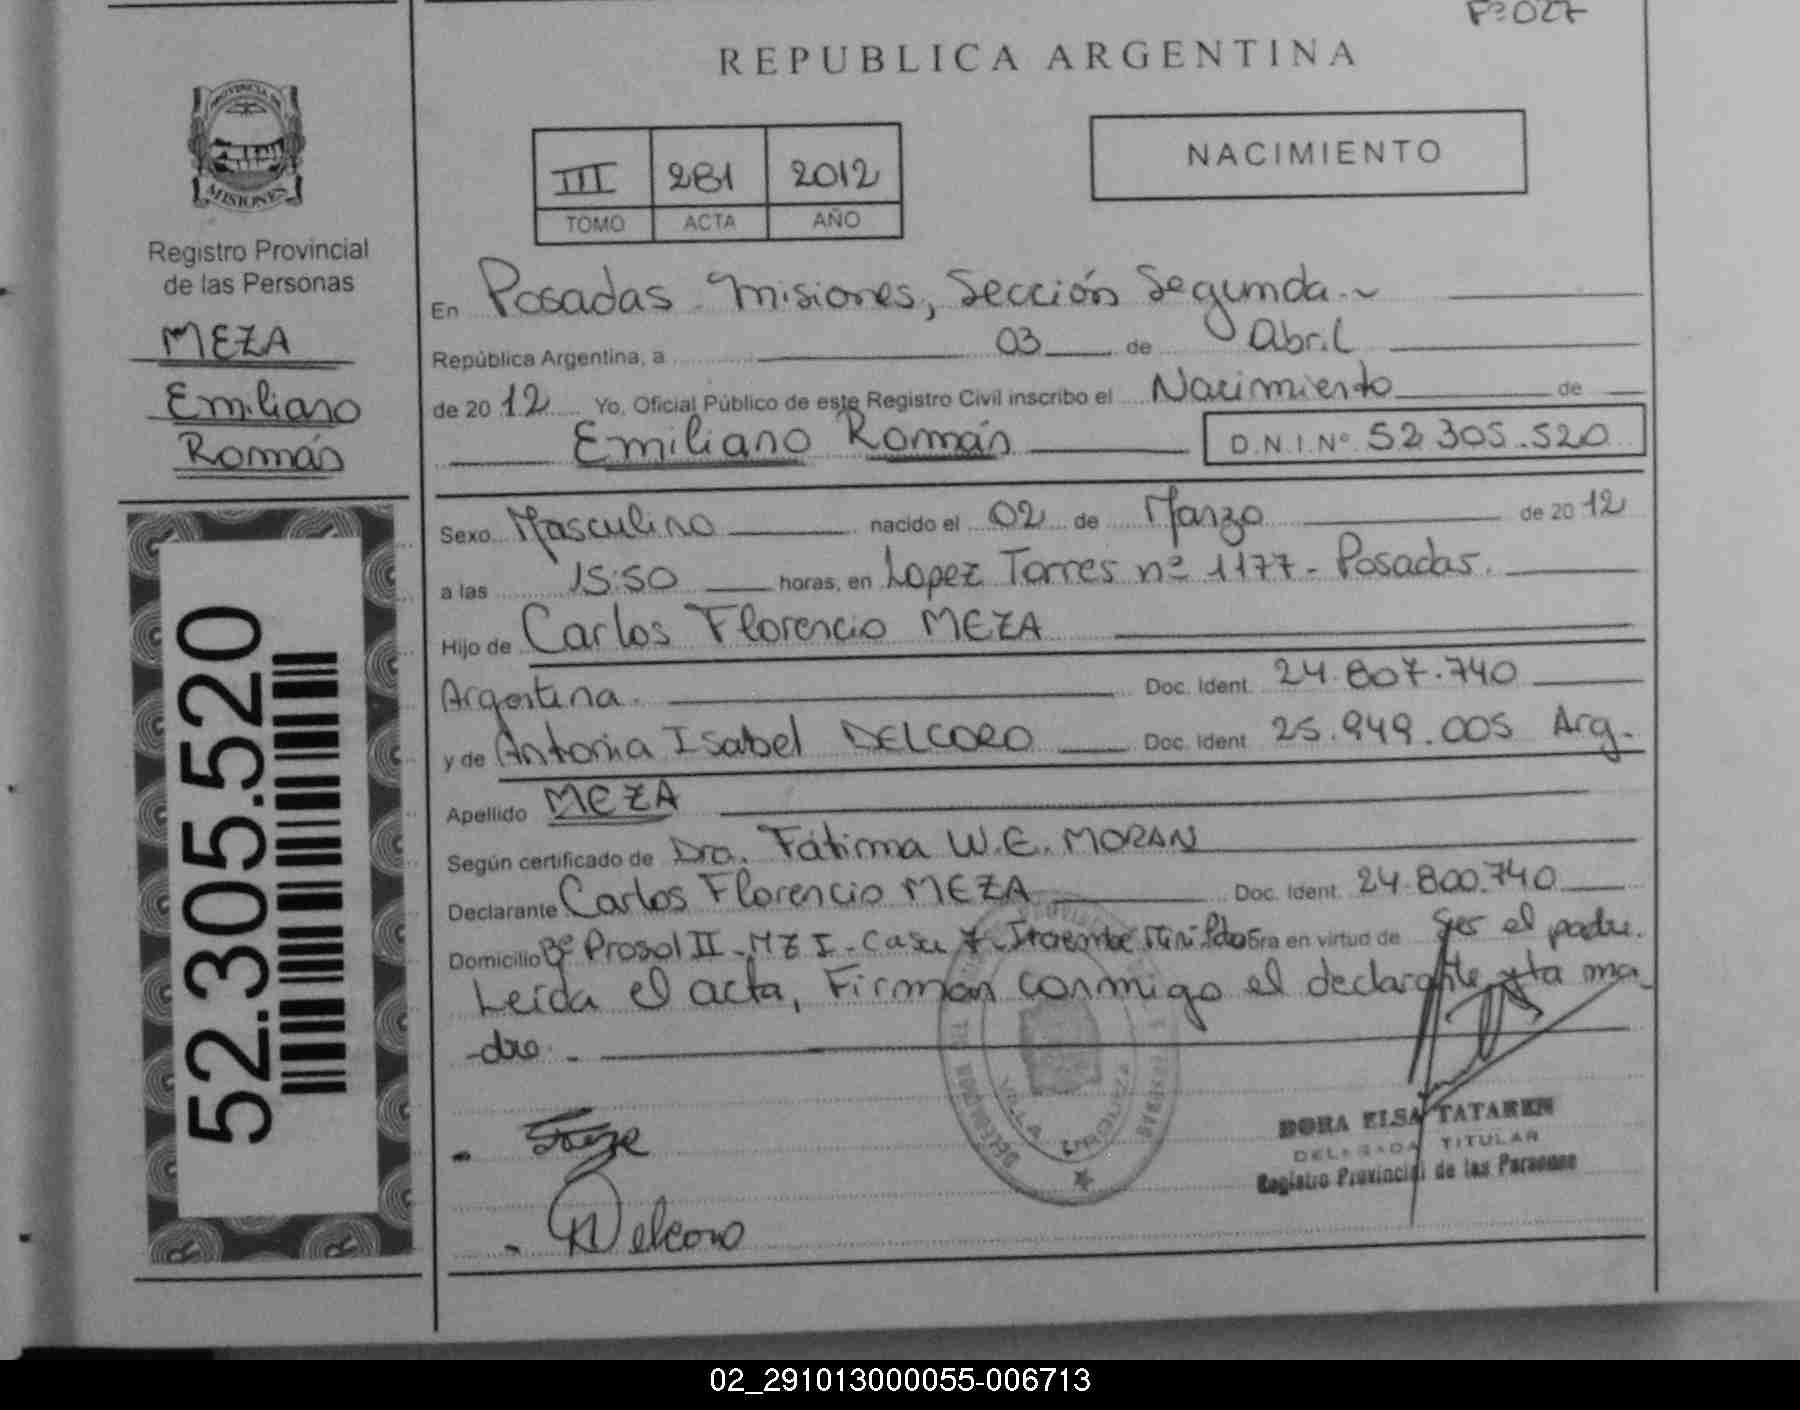 Fº 027
REPUBLICA ARGENTINA
NACIMIENTO
III 281 2012
TOMO ACTA AÑO
PROVINCIA DE
MISIONES
Registro Provincial
de las Personas
MEZA
Emiliano
Román
52.305.520
En Posadas - Misiones, Sección Segunda.-
República Argentina, a 03 de Abril
de 2012 Yo, Oficial Público de este Registro Civil inscribo el Nacimiento de
Emiliano Román D.N.I.Nº 52.305.520
Sexo Masculino nacido el 02 de Marzo de 2012
a las 15:50 horas, en Lopez Torres nº 1177 - Posadas.
Hijo de Carlos Florencio MEZA
Argentina. Doc. Ident. 24.807.740
y de Antonia Isabel DELCORO Doc. Ident. 25.949.005 Arg.
Apellido MEZA
Según certificado de Dra. Fátima W.E. MORAN
Declarante Carlos Florencio MEZA Doc. Ident. 24.800.740
Domicilio Bº Prosol II - MZ I - Casa 7 - Itaembé Miní Pdas Obra en virtud de ser el padre.
Leída el acta, Firman conmigo el declarante y la ma-
-dre.-
Meza
Delcoro
DELEGADA VILLA URQUIZA
DORA ELSA TATAREN
DELEGADA TITULAR
Registro Provincial de las Personas
02_291013000055-006713